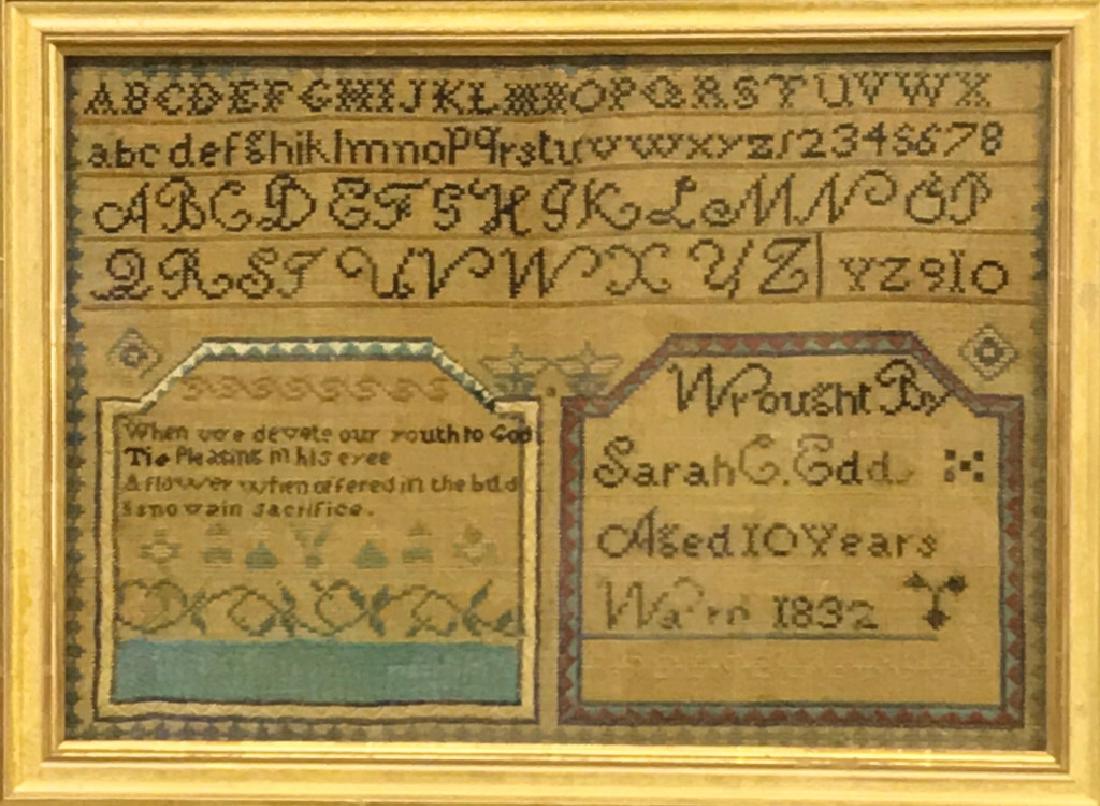 ABCDEFGHIJKLMNOPQRSTUVWX
abcdefghiklmnopqrstuvwxyz12345678
ABCDEFGHIKLMNOP
QRSTUVWXYZ YZ910
When we devote our youth to God
Tis Pleasing in his eyes
A flower when offered in the bud
Is no vain sacrifice.
Wrought By
Sarah C. Edd
Aged 10 Years
Ward 1832